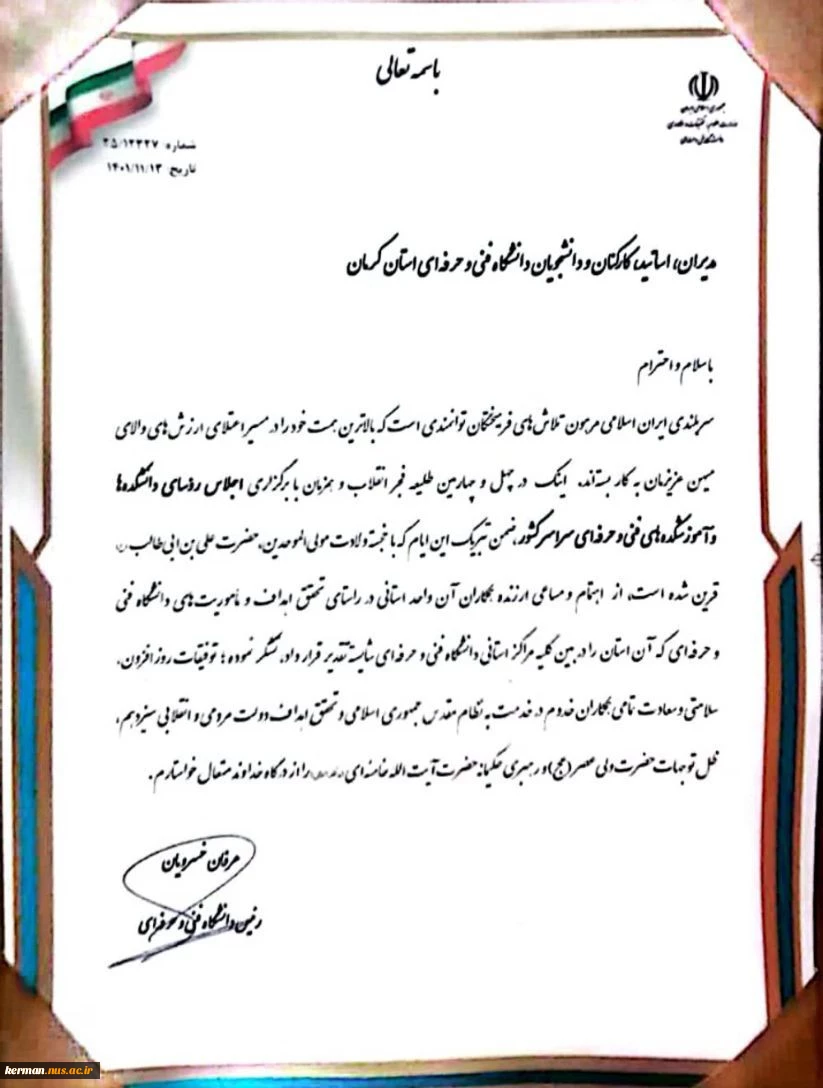 باسمه تعالی
جمهوری اسلامی ایران
وزارت علوم، تحقیقات و فناوری
دانشگاه فنی و حرفه‌ای
شماره: ۲۵/۱۲۳۲۷
تاریخ: ۱۴۰۱/۱۱/۱۳
مدیران، اساتید، کارکنان و دانشجویان دانشگاه فنی و حرفه ای استان کرمان
با سلام و احترام
سربلندی ایران اسلامی مرهون تلاش های فرهیختگان توانمندی است که بالاترین همت خود را در مسیر اعتلای ارزش های والای
میهن عزیزمان به کار بسته‌اند. اینک در چهل و چهارمین طلیعه فجر انقلاب و همزمان با برگزاری اجلاس رؤسای دانشکده‌ها
و آموزشکده‌های فنی و حرفه‌ای سراسر کشور، ضمن تبریک این ایام که با خجسته ولادت مولی الموحدین، حضرت علی بن ابی طالب (ع)
قرین شده است، از اهتمام و مساعی ارزنده همکاران آن واحد استانی در راستای تحقق اهداف و مأموریت‌های دانشگاه فنی
و حرفه ای که آن استان را در بین کلیه مراکز استانی دانشگاه فنی و حرفه ای شایسته تقدیر قرار داد، تشکر نموده؛ توفیقات روز افزون،
سلامتی و سعادت تمامی همکاران خدوم در خدمت به نظام مقدس جمهوری اسلامی و تحقق اهداف دولت مردمی و انقلابی سیزدهم،
ظل توجهات حضرت ولی عصر (عج) و رهبری حکیمانه حضرت آیت الله خامنه‌ای را از درگاه خداوند متعال خواستارم.
عرفان خسرویان
رئیس دانشگاه فنی و حرفه‌ای
kerman.nus.ac.ir